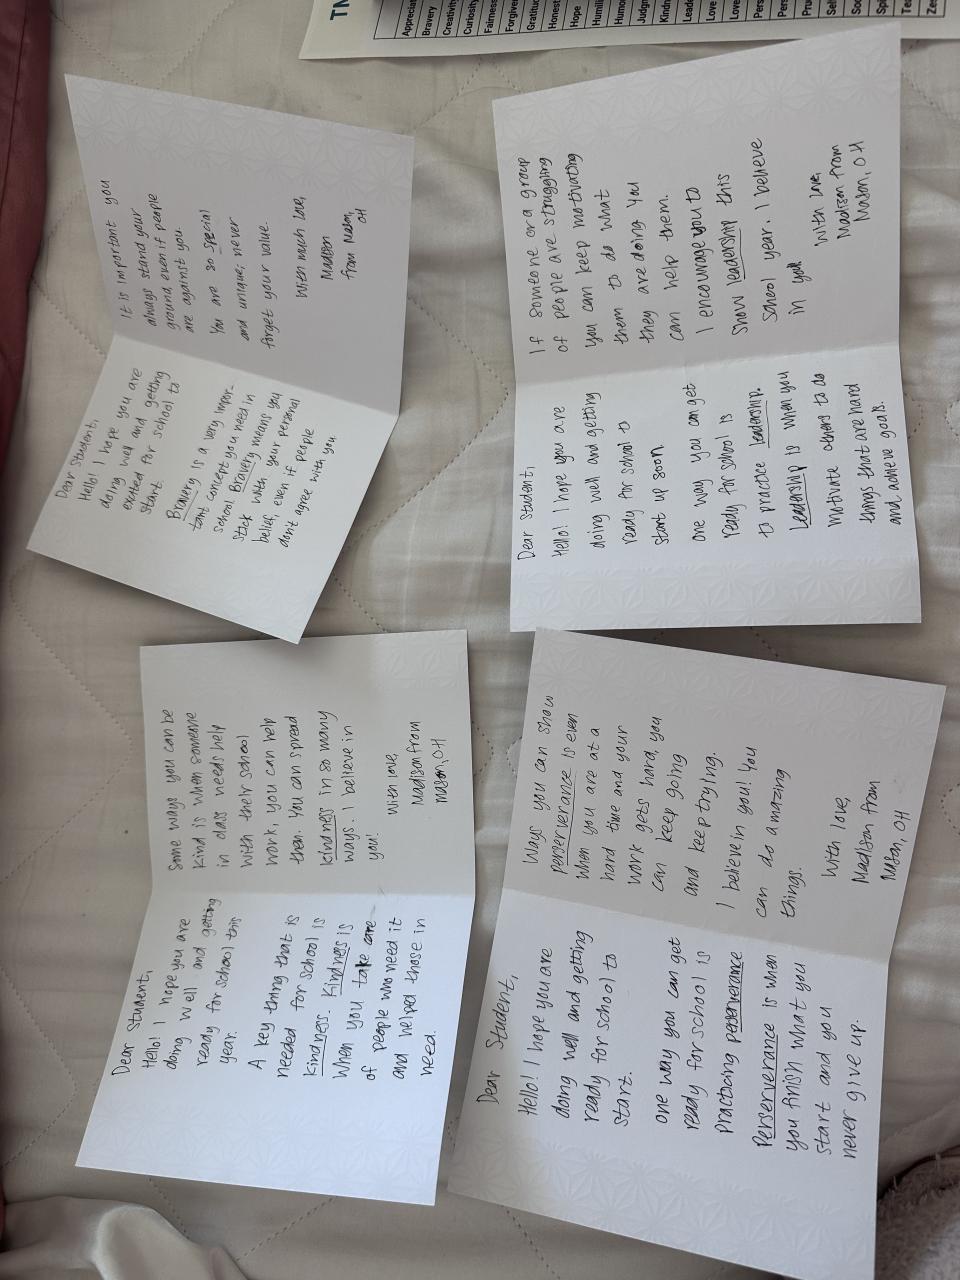 Dear Student,
Hello! I hope you are
doing well and getting
excited for school to
start.
Bravery is a very impor-
tant concept you need in
school. Bravery means you
stick with your personal
belief, even if people
don't agree with you
It is important you
always stand your
ground even if people
are against you.
You are so special
and unique, never
forget your value.
With much love,
Madison
from Mason,
OH
Dear Student,
Hello! I hope you are
doing well and getting
ready for school to
start up soon.
One way you can get
ready for school is
to practice leadership.
Leadership is when you
motivate others to do
things that are hard
and achieve goals.
If someone or a group
of people are struggling
you can keep motivating
them to do what
they are doing. You
can help them.
I encourage you to
show leadership this
school year. I believe
in you!
With love,
Madison from
Mason, OH
Dear Student,
Hello! I hope you are
doing well and getting
ready for school this
year.
A key thing that is
needed for school is
kindness. Kindness is
when you take care
of people who need it
and helped those in
need.
Some ways you can be
kind is when someone
in class needs help
with their school
work, you can help
them. You can spread
kindness in so many
ways. I believe in
you!
With love,
Madison from
Mason, OH
Dear Student,
Hello! I hope you are
doing well and getting
ready for school to
start.
One way you can get
ready for school is
practicing perserverance
Perserverance is when
you finish what you
start and you
never give up.
Ways you can show
perserverance is even
when you are at a
hard time and your
work gets hard, you
can keep going
and keep trying.
I believe in you! You
can do amazing
things.
With love,
Madison from
Mason, OH
TM
Bravery
Creativity
Curiosity
Fairness
Hope